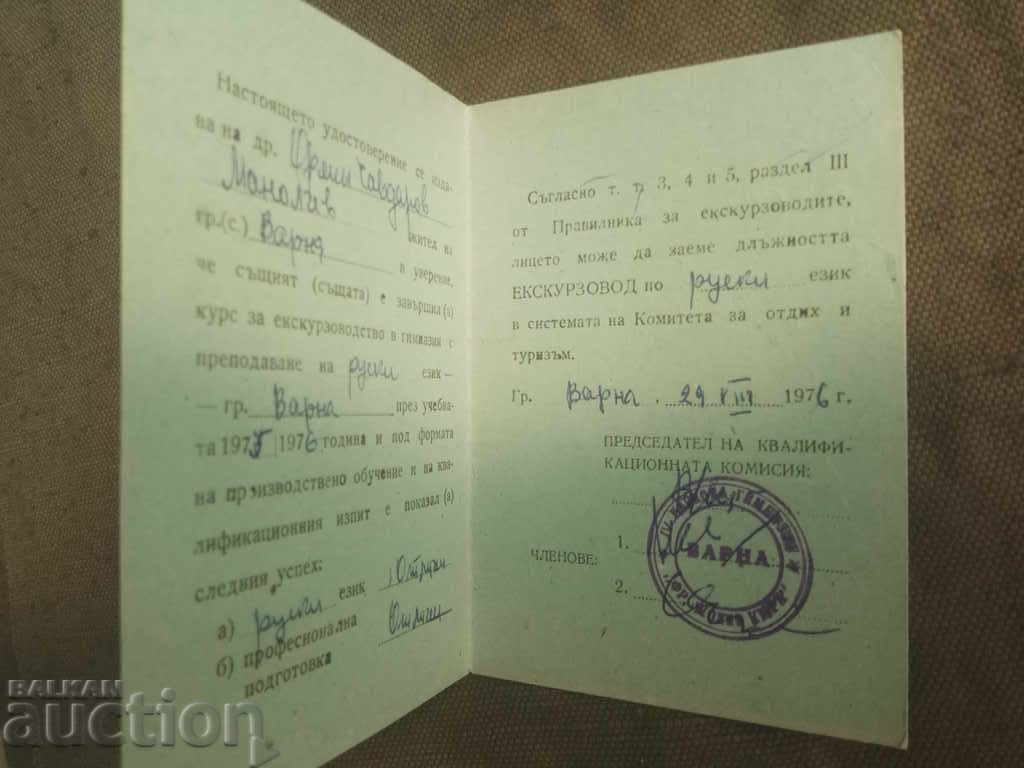 Настоящето удостоверение се изда-
ва на др. Чавдаров
Манолив жител на
гр.(с.) Варна в уверение,
че същият (същата) е завършил (а)
курс за екскурзоводство в гимназия с
преподаване на руски език —
— гр. Варна през учебна-
та 1975 | 1976 година и под формата
на производствено обучение и на ква-
лификационния изпит е показал (а)
следния успех:
а) руски език Отличен
б) професионална Отличен
подготовка
Съгласно т. т. 3, 4 и 5, раздел III
от Правилника за екскурзоводите,
лицето може да заеме длъжността
ЕКСКУРЗОВОД по руски език
в системата на Комитета за отдих и
туризъм.
Гр. Варна. 29 VIII 1976 г.
ПРЕДСЕДАТЕЛ НА КВАЛИФИ-
КАЦИОННАТА КОМИСИЯ:
ЧЛЕНОВЕ: 1.
2.
ВАРНА
BALKAN
auction